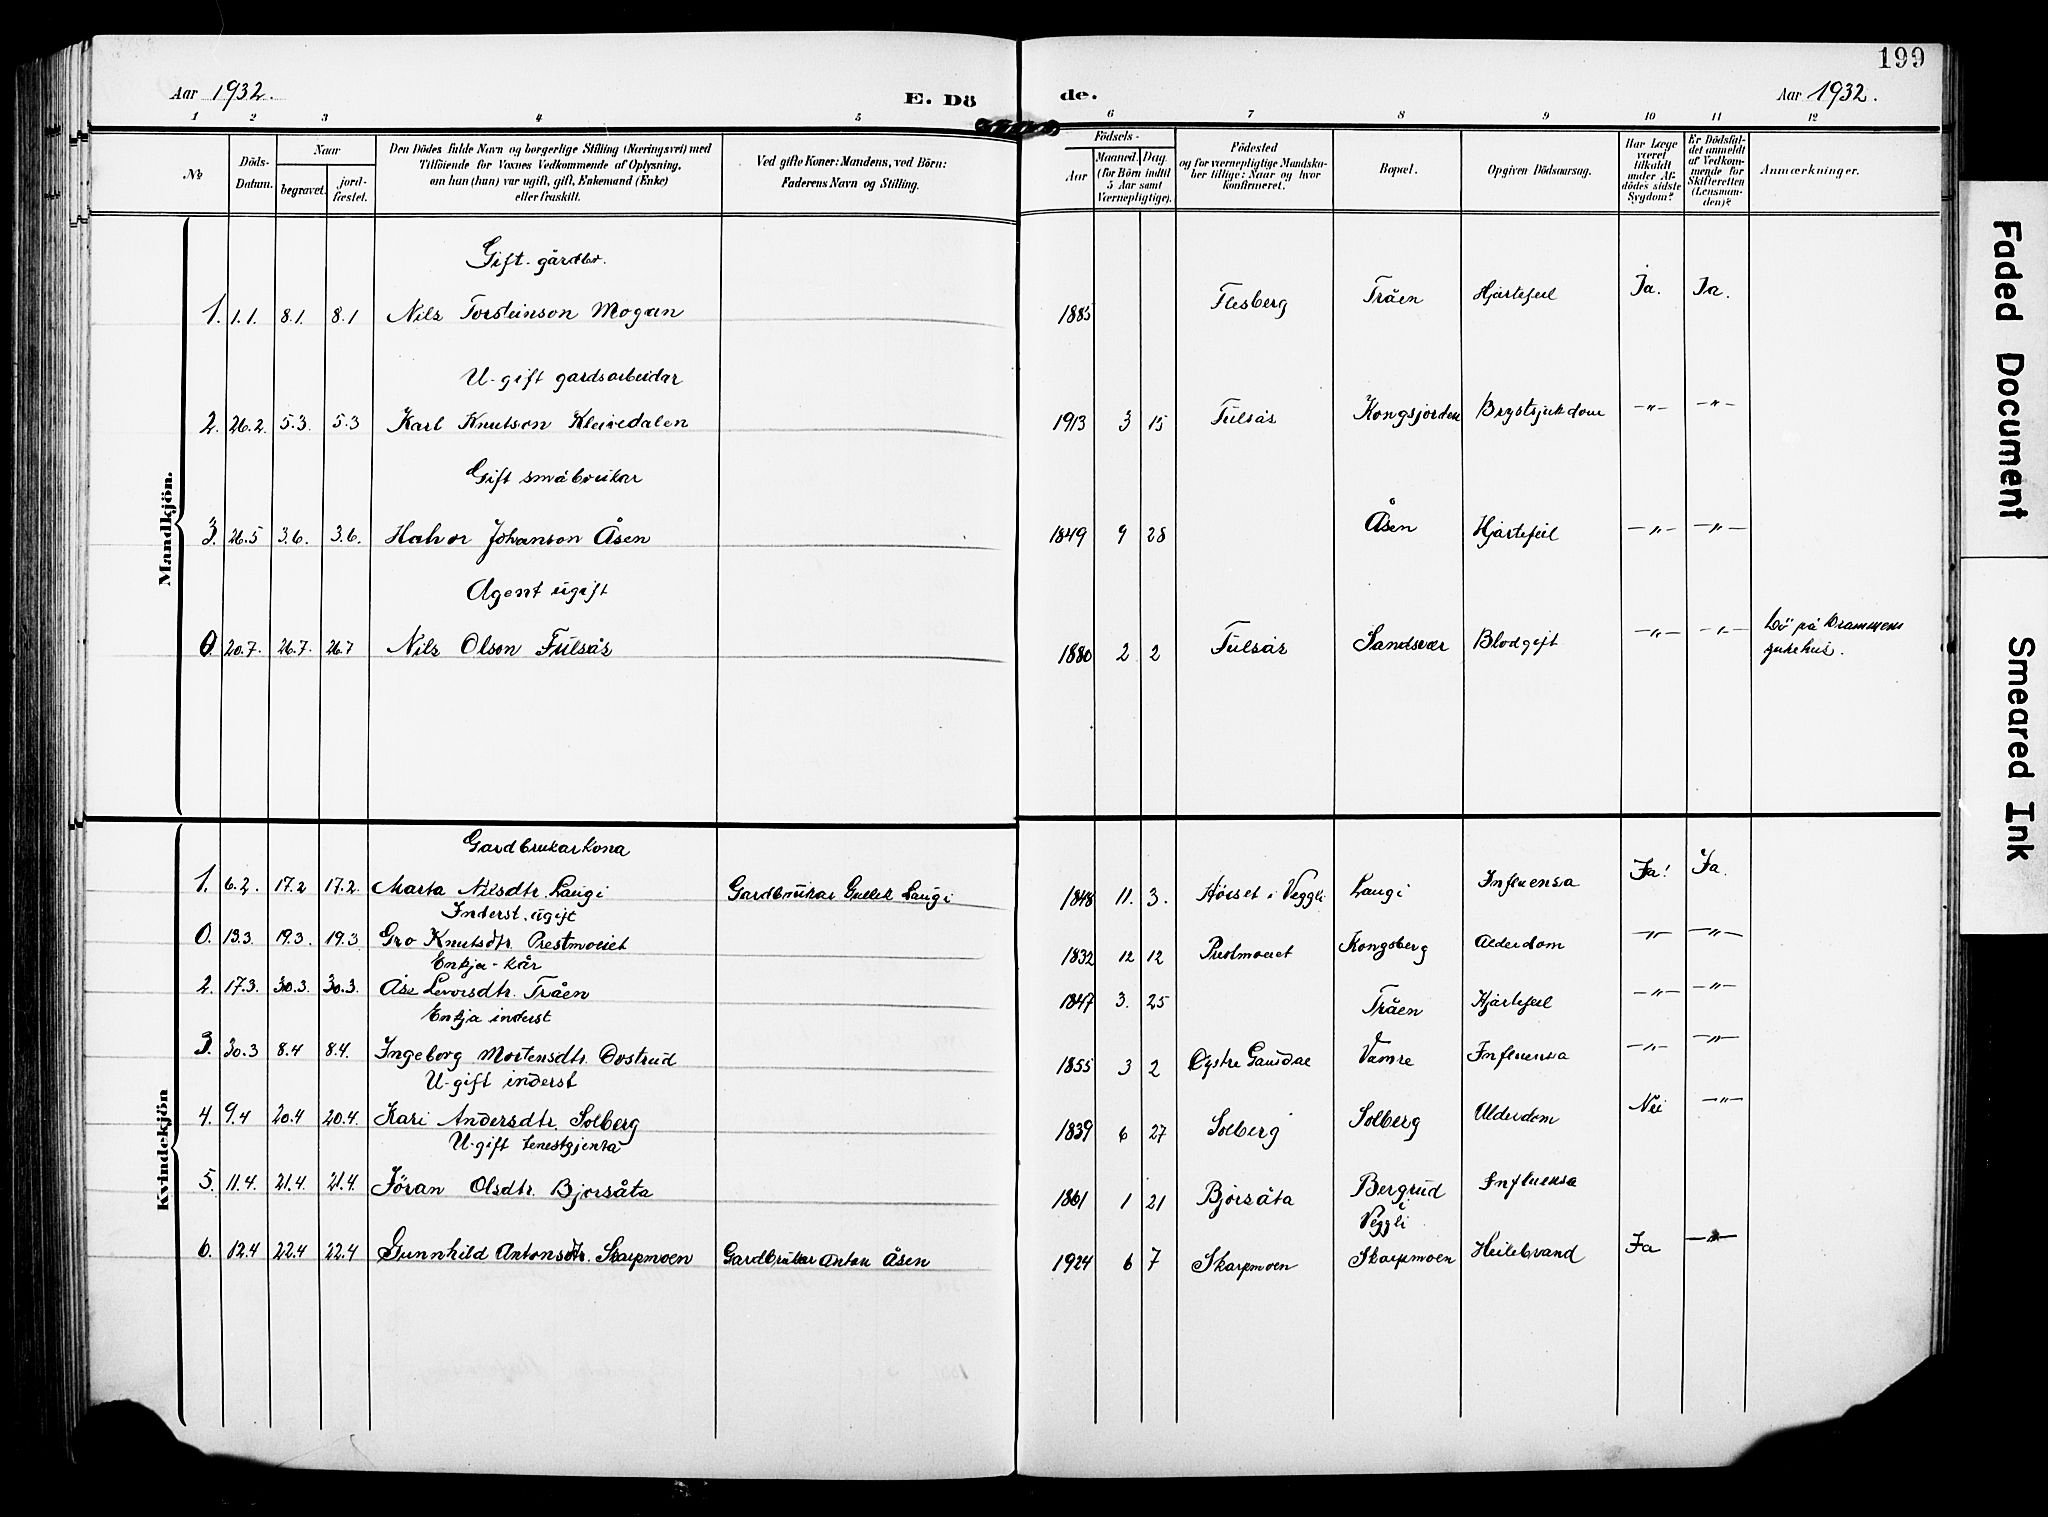 199
Aar 1932.
E. Dö
de.
Aar 1932.
1 2 3 4 5 6 7 8 9 10 11 12
No
Döds-
Datum.
Naar
begravet.
jord-
fæstet.
Den Dödes fulde Navn og borgerlige Stilling (Næringsvei) med
Tilföiende for Voxnes Vedkommende af Oplysning,
om han (hun) var ugift, gift, Enkemand (Enke)
eller fraskilt.
Ved gifte Koner: Mandens, ved Börn:
Faderens Navn og Stilling.
Födsels-
Aar
Maaned. Dag.
(for Börn indtil
5 Aar samt
Værnepligtige).
Födested
og for værnepligtige Mandska-
ber tillige: Naar og hvor
konfirmeret.
Bopæl.
Opgiven Dödsaarsag.
Har Læge
været
tilkaldt
under Af-
dödes sidste
Sygdom?
Er Dödsfal-
det anmeldt
af Vedkom-
mende for
Skifteretten
(Lensman-
den)?
Anmærkninger.
Mandkjön.
Gift. gårdbr.
1. 1.1. 8.1. 8.1 Nils Torsteinson Mogan 1885 Flesberg Tråen Hjartefeil Ja. Ja.
U-gift gardsarbeidar
2. 26.2. 5.3. 5.3 Karl Knutson Kleivedalen 1913 3 15 Fulsås Kongsjorden Brystsjukdom —"— —"—
Gift småbrukar
3. 26.5 3.6. 3.6. Halvor Johanson Åsen 1849 9 28 Åsen Hjartefeil —"— —"—
Agent ugift
0. 20.7. 26.7. 26.7 Nils Olson Fulsås 1880 2 2 Fulsås Sandsvær Blodgift —"— —"— Dö på Drammens
sjukehus.
Kvindekjön
Gardbrukarkona
1. 6.2. 17.2 17.2. Marta Nilsdtr. Laugi Gardbrukar Gullik Laugi 1848 11. 3. Hörset i Veggli Laugi Influensa Ja! Ja.
Inderst. ugift
0. 13.3. 19.3. 19.3 Gro Knutsdtr. Prestmoeiet 1832 12 12 Prestmoeiet Kongsberg Alderdom —"— —"—
Enkja - kår
2. 17.3. 30.3. 30.3. Åse Levorsdtr. Tråen 1847 3. 25 Tråen Hjartefeil —"— —"—
Enkja inderst
3. 30.3 8.4 8.4. Ingeborg Mortensdtr. Dostrud 1855 3 2 Öystre Gausdal Vamre Influensa —"— —"—
U-gift inderst
4. 9.4 20.4 20.4. Kari Andersdtr. Solberg 1839 6 27 Solberg Solberg Alderdom Nei —"—
U-gift tenestgjenta
5. 11.4. 21.4. 21.4 Jöran Olsdtr. Bjorsåta 1861 1 21 Bjorsåta Bergrud
i
Veggli Influensa
6. 12.4 22.4 22.4 Gunnhild Antonsdtr. Skarpmoen Gardbrukar Anton Åsen 1924 6 7 Skarpmoen Skarpmoen Heilebrand Ja —"—
Faded Document
Smeared Ink